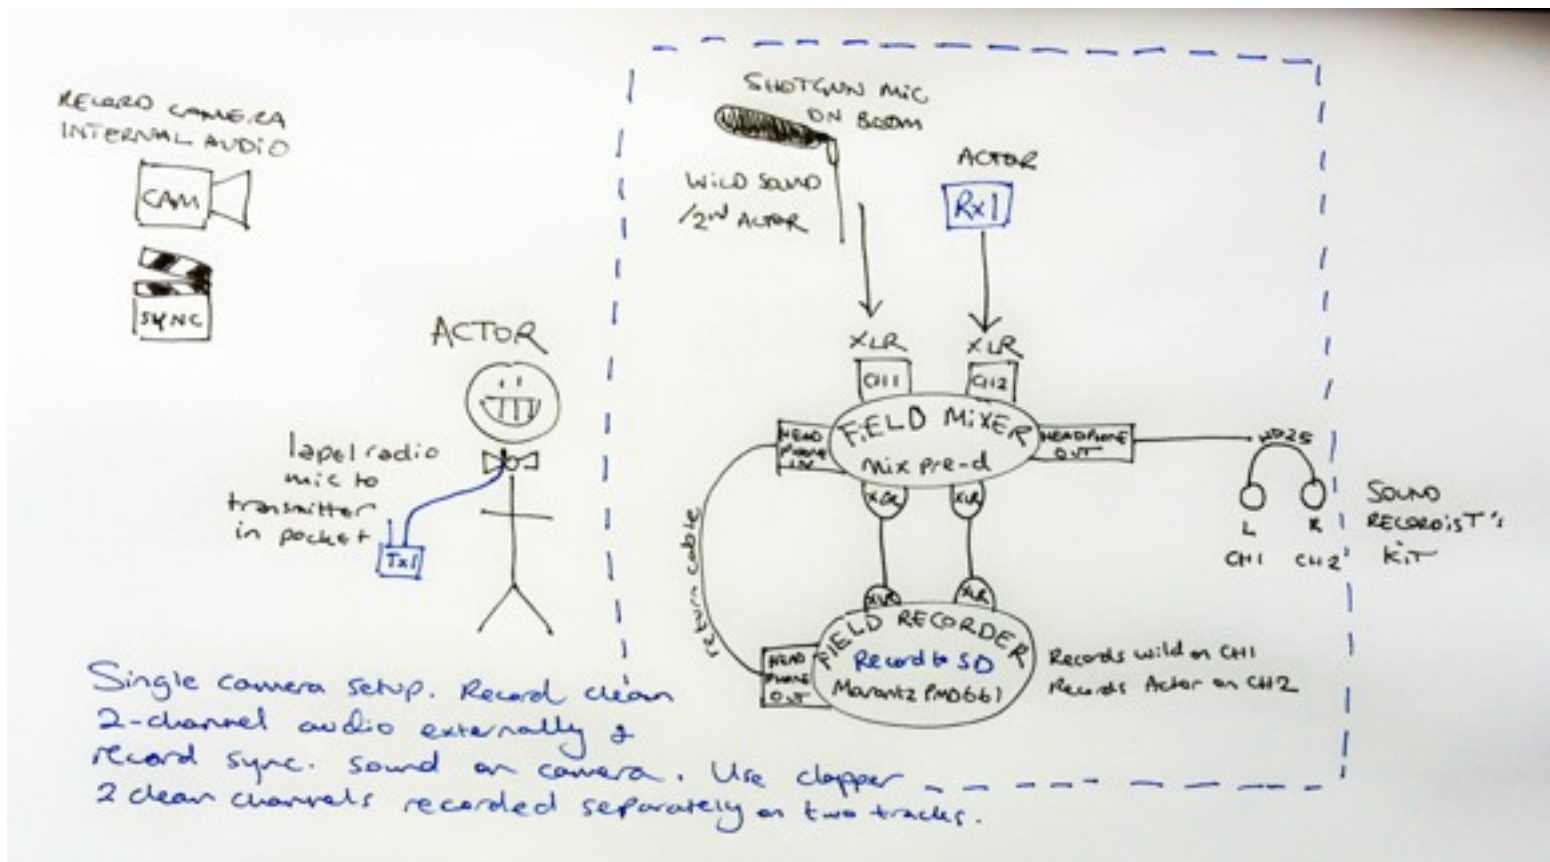 RECORD CAMERA
INTERNAL AUDIO
CAM
SYNC
ACTOR
lapel radio
mic to
transmitter
in pocket
Tx1
SHOTGUN MIC
ON BOOM
WILD SOUND
/2nd ACTOR
ACTOR
Rx1
XLR
XLR
CH1
CH2
HEAD
PHONE
IN
FIELD MIXER
mix pre-d
HEADPHONE
OUT
HD25
L
R
CH1
CH2
SOUND
RECORDIST's
KIT
XLR
XLR
return cable
XLR
XLR
HEAD
PHONE
OUT
FIELD RECORDER
Record to SD
Marantz PMD661
Records wild on CH1
Records Actor on CH2
Single camera setup. Record clean
2-channel audio externally &
record sync. sound on camera. Use clapper
2 clean channels recorded separately on two tracks.